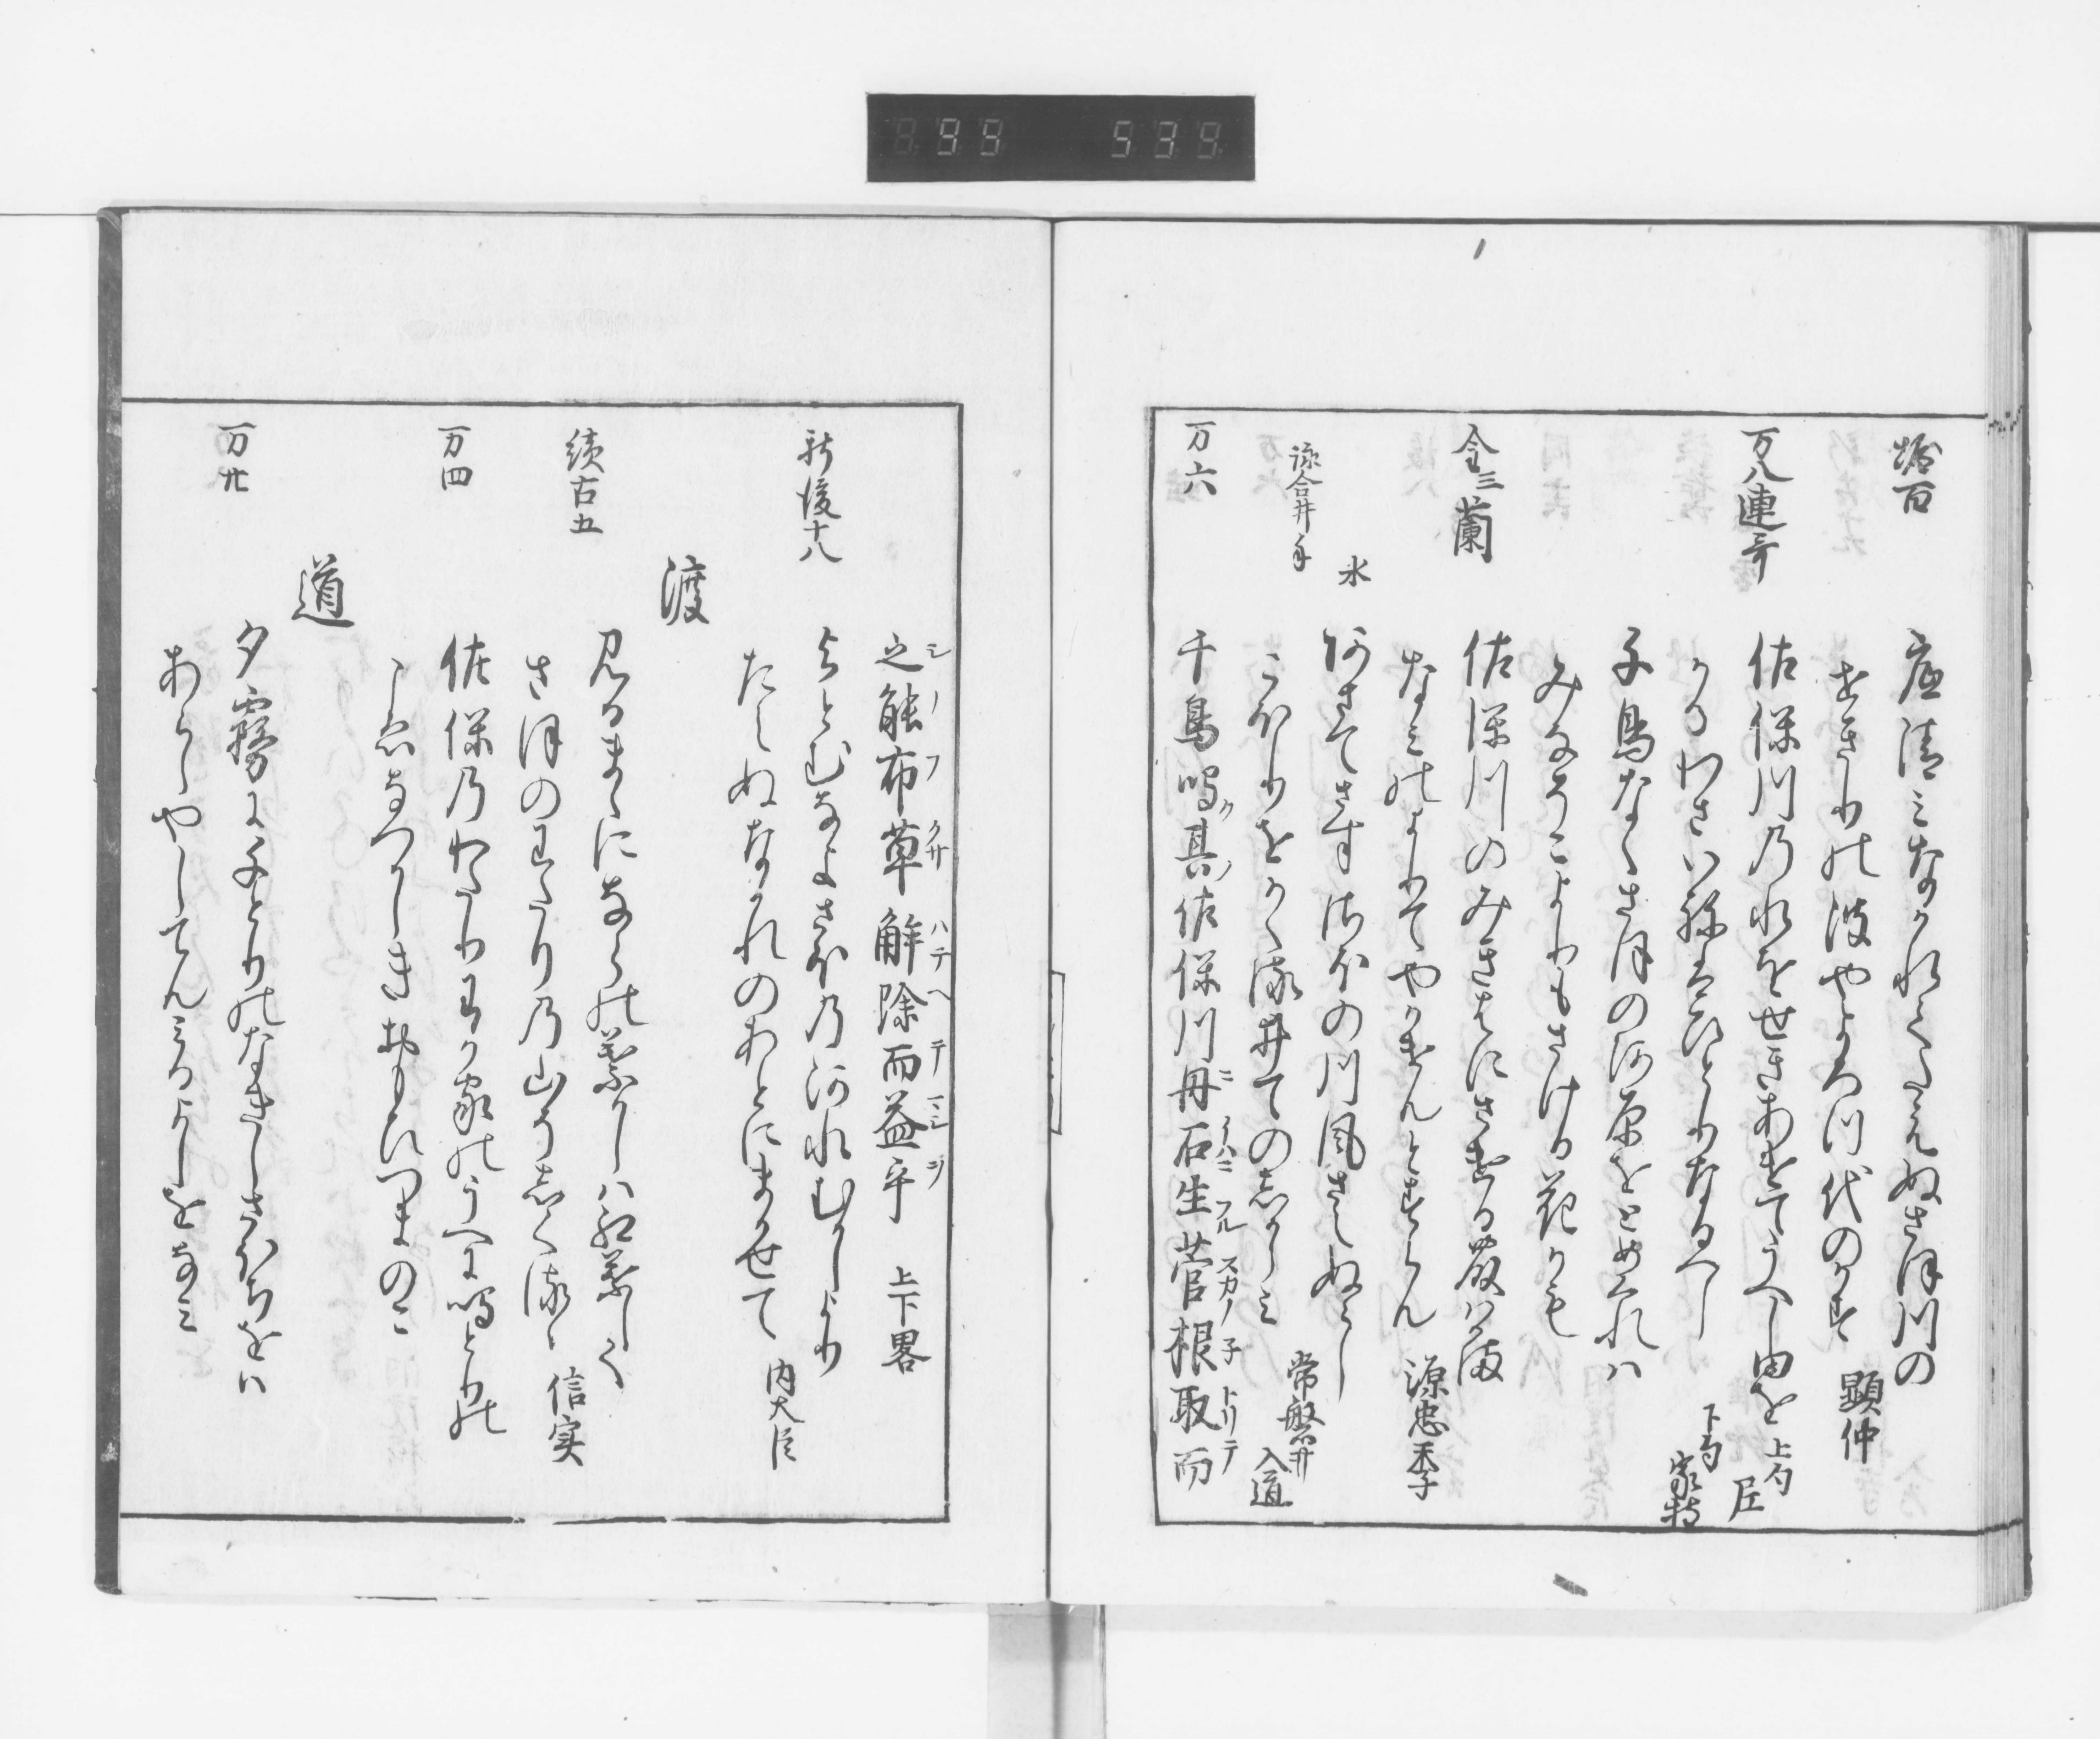 堀百
底清みなかれてたえぬさほ川の
せきりの波やよろつ代のかす 顕仲
万八連哥
佐保川乃水をせきあけてうへし田を 上句 尼
かるわさいねはひとりなるへし 下句 家持
千鳥なくさほの河原をとめくれは
みなそこよりもさける花かも
金三 蘭
佐保川のみきはにさける蘭
なみのよりてやかけんとすらん 源忠季
氷
詠合井手
河さてさす さほの川風さえぬらし
こほりをかくる井ての志からみ 常盤井入道
万六
千鳥鳴其佐保川丹石生菅根取而
之能布草解除而益乎 上下畧
新後十八
よとむなよさほ乃河水むかしより
たえぬなかれのあとにまかせて 内大臣
渡
続古五
みるまゝにならの葉かしは紅葉して
さほのわたり乃山そ志くるゝ 信実
万四
佐保乃わたりわか家のうへに鳴とりの
こゑなつかしきおもひつまのこ
道
万廿
夕霧に千とりのなきしさほちをは
あらしやしてんみるよしをなみ